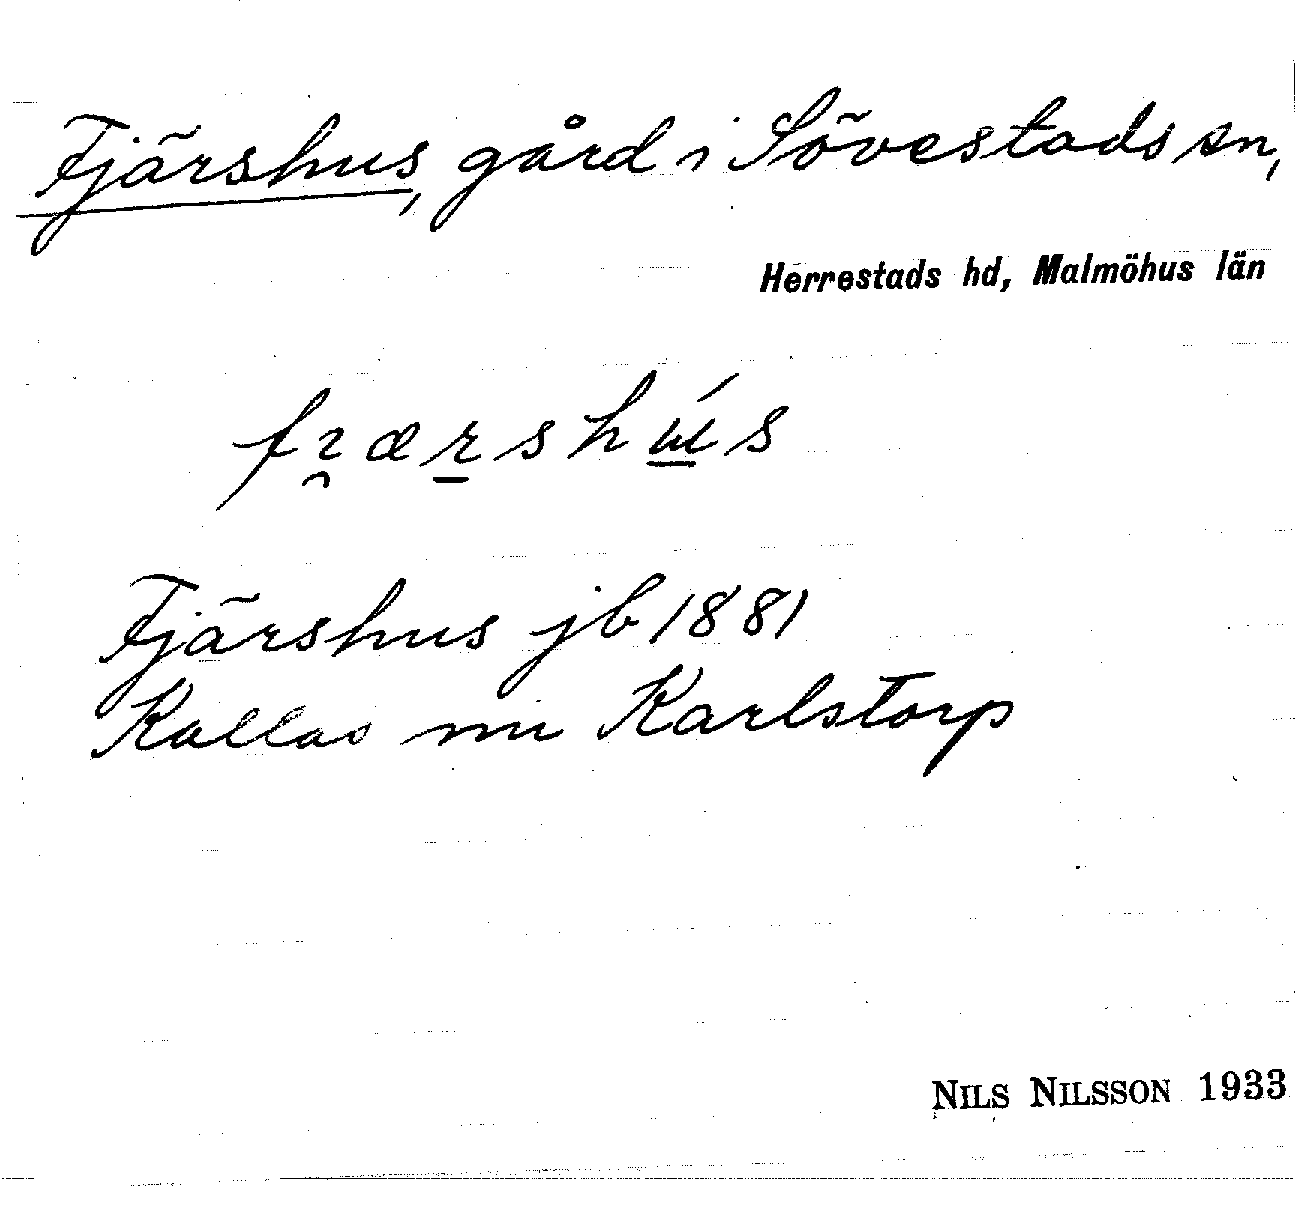 Fjärshus, gård i Sövestads sn,
Herrestads hd, Malmöhus län
Fjärshus jb 1881
Kallas nu Karlstorp
NILS NILSSON 1933